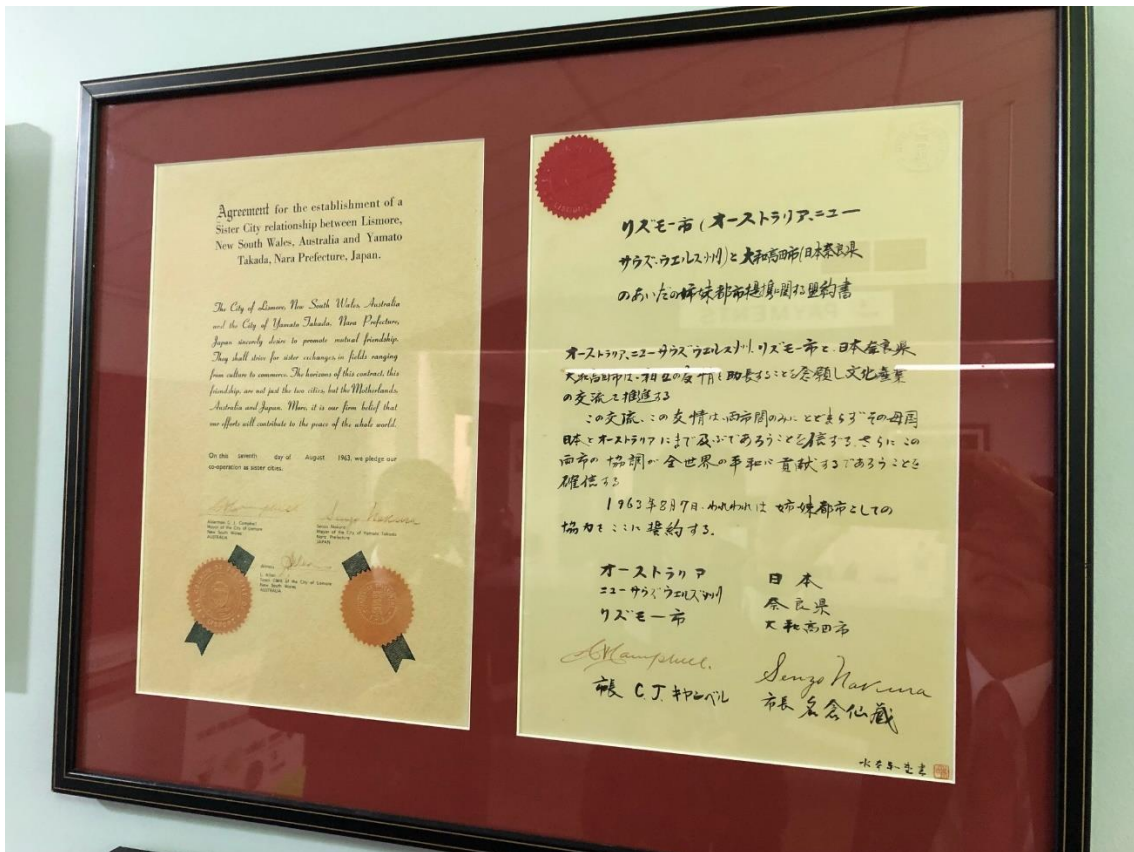 Agreement for the establishment of a
Sister City relationship between Lismore,
New South Wales, Australia and Yamato
Takada, Nara Prefecture, Japan.
The City of Lismore, New South Wales, Australia
and the City of Yamato Takada, Nara Prefecture,
Japan sincerely desire to promote mutual friendship.
They shall strive for sister exchanges in fields ranging
from culture to commerce. The horizons of this contract, this
friendship, are not just the two cities, but the Motherlands,
Australia and Japan. More, it is our firm belief that
our efforts will contribute to the peace of the whole world.
On this seventh day of August 1963, we pledge our
co-operation as sister cities.
Alderman C. J. Campbell
Mayor of the City of Lismore
New South Wales
AUSTRALIA
Senzo Nakura
Senzo Nakura
Mayor of the City of Yamato Takada
Nara Prefecture
JAPAN
Witness
Town Clerk of the City of Lismore
New South Wales
AUSTRALIA
リズモー市(オーストラリア、ニュー
サウズ・ウエルス州)と大和高田市(日本奈良県
のあいだの姉妹都市提携に関する盟約書
オーストラリア、ニューサウズウエルス州、リズモー市と、日本奈良県
大和高田市は、相互の友情を助長することを念願し文化産業
の交流を推進する
この交流、この友情は、両市間のみにとどまらずその母国
日本とオーストラリアにまで及ぶであろうことを信ずる、さらにこの
両市の協調が全世界の平和に貢献するであろうことを
確信する
1963年8月7日、われわれは姉妹都市としての
協力をここに誓約する。
オーストラリア
ニューサウズウエルズ州
リズモー市
C. J. Campbell.
市長 C.J.キャンベル
日本
奈良県
大和高田市
Senzo Nakura
市長 名倉仙蔵
PAYMENTS